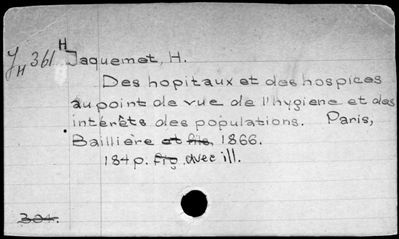 JH 361 H Jaquemet, H.
Des hopitaux et des hospices
au point de vue de l'hygiene et des
intérêts des populations. Paris,
Baillière et fils, 1866.
184 p. fig. avec ill.
304.